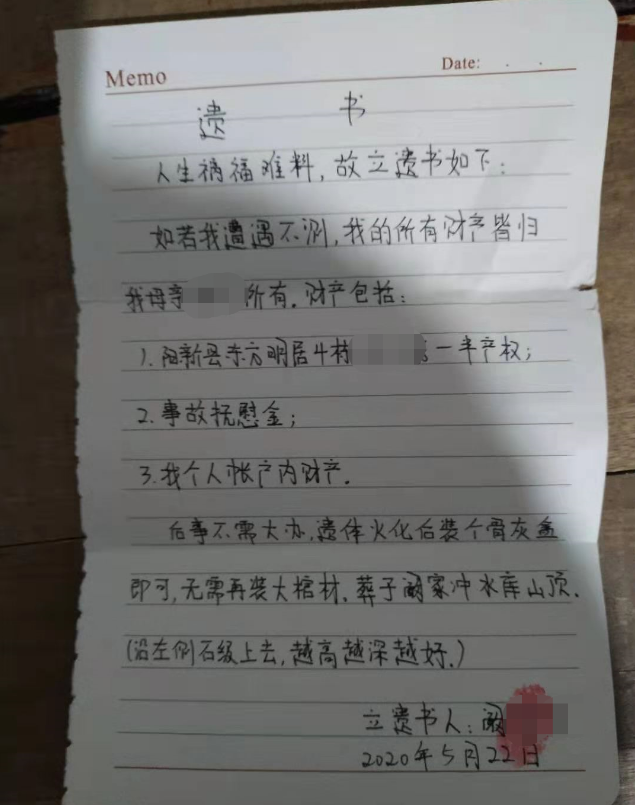 Memo
Date:
遗 书
人生祸福难料，故立遗书如下：
如若我遭遇不测，我的所有财产皆归
我母亲 所有。财产包括：
1.阳新县东方明居4栋 一半产权；
2.事故抚慰金；
3.我个人帐户内财产。
后事不需大办，遗体火化后装个骨灰盒
即可，无需再装大棺材。葬于阚家冲水库山顶。
（沿左侧石级上去，越高越深越好。）
立遗书人：阚
2020年5月22日